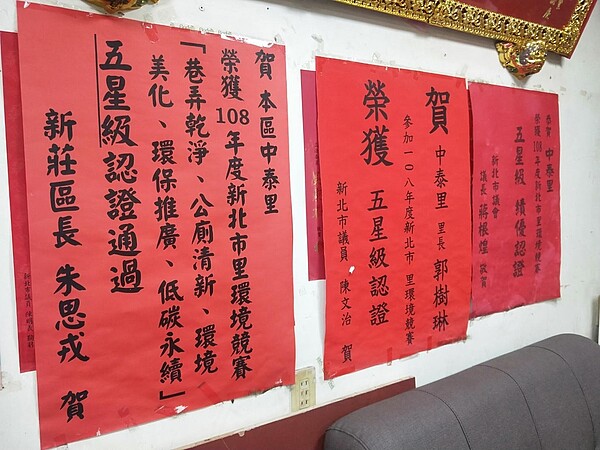 賀 本區中泰里
榮獲 108 年度新北市里環境競賽
「巷弄乾淨、公廁清新、環境
美化、環保推廣、低碳永續」
五星級認證通過
新莊區長 朱思戎 賀
賀 中泰里 里長 郭樹琳
參加一〇八年度新北市 里環境競賽
榮獲 五星級認證
新北市議員 陳文治 賀
恭賀 中泰里
榮獲108年度新北市里環境競賽
五星級 績優認證
新北市議會
議長 蔣根煌 敬賀